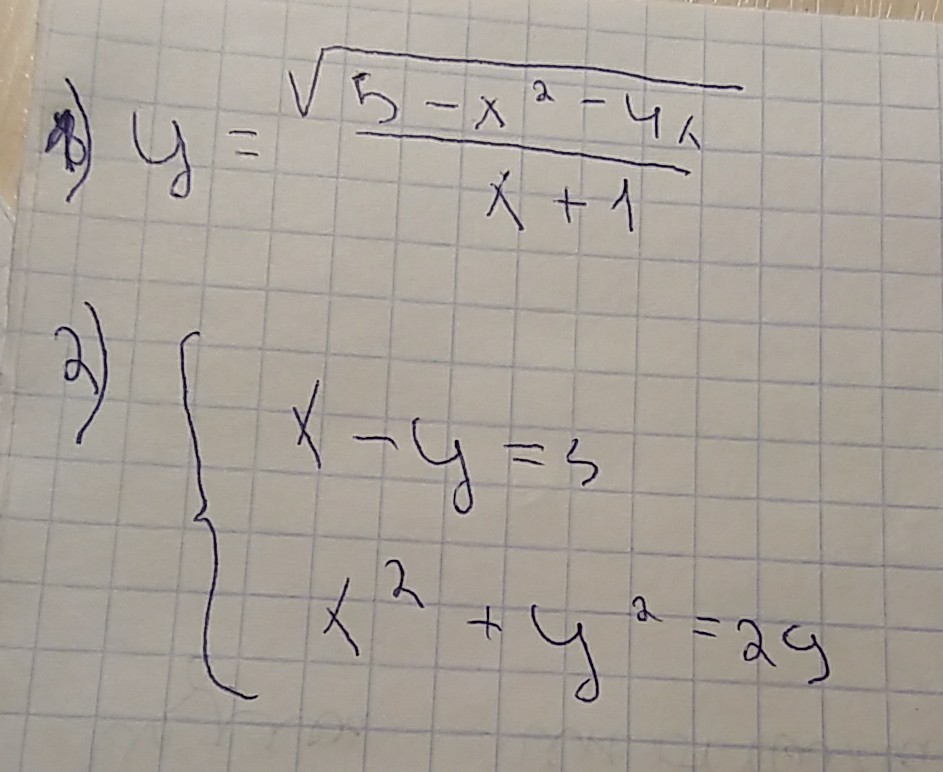 1) y = √(5 - x² - 4x) / (x + 1)
2) { x - y = 3
x² + y² = 29